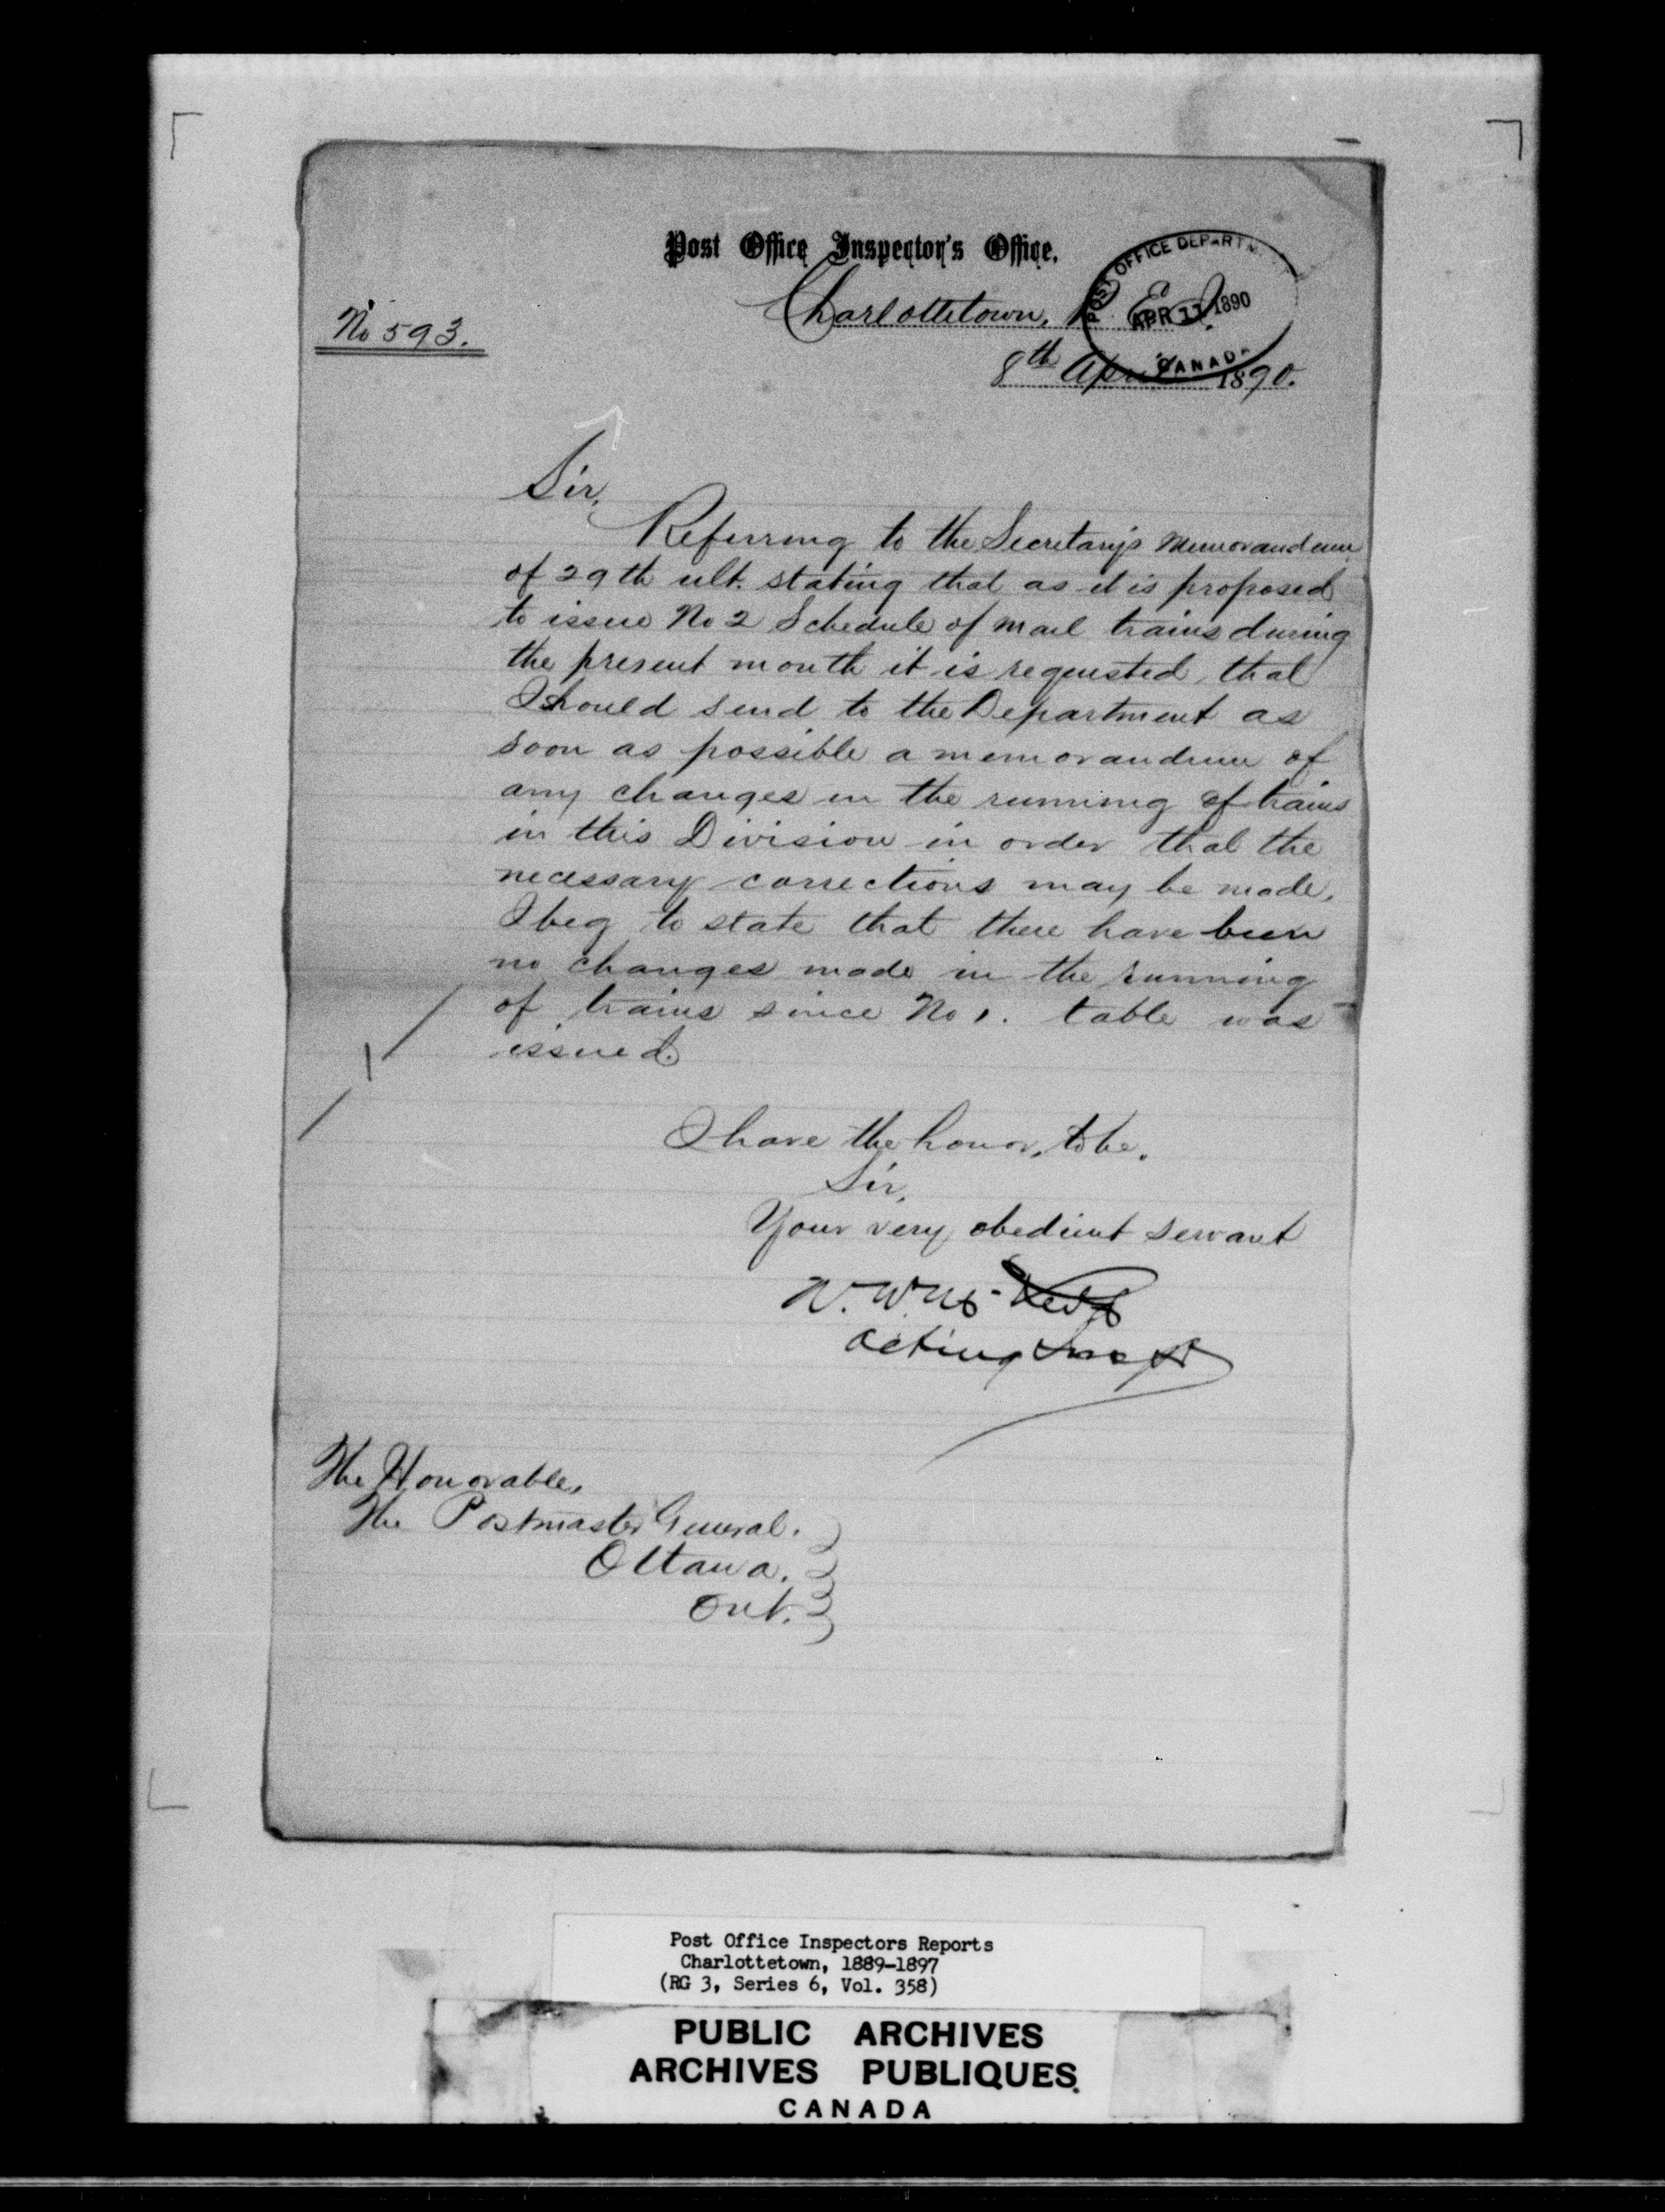 Post Office Inspector's Office.
Charlottetown, P. E. I.
POST OFFICE DEPARTM
APR 11 1890
CANADA
No 593.
8th April 1890.
Sir,
Referring to the Secretary's Memorandum
of 29th ult. stating that as it is proposed
to issue No 2 Schedule of mail trains during
the present month it is requested that
I should send to the Department as
soon as possible a memorandum of
any changes in the running of trains
in this Division in order that the
necessary corrections may be made,
I beg to state that there have been
no changes made in the running
of trains since No 1. table was
issued.
I have the honor, to be.
Sir,
Your very obedient servant
acting Inspr
The Honorable,
The Postmaster General.
Ottawa.
Ont.
Post Office Inspectors Reports
Charlottetown, 1889-1897
(RG 3, Series 6, Vol. 358)
PUBLIC ARCHIVES
ARCHIVES PUBLIQUES
CANADA